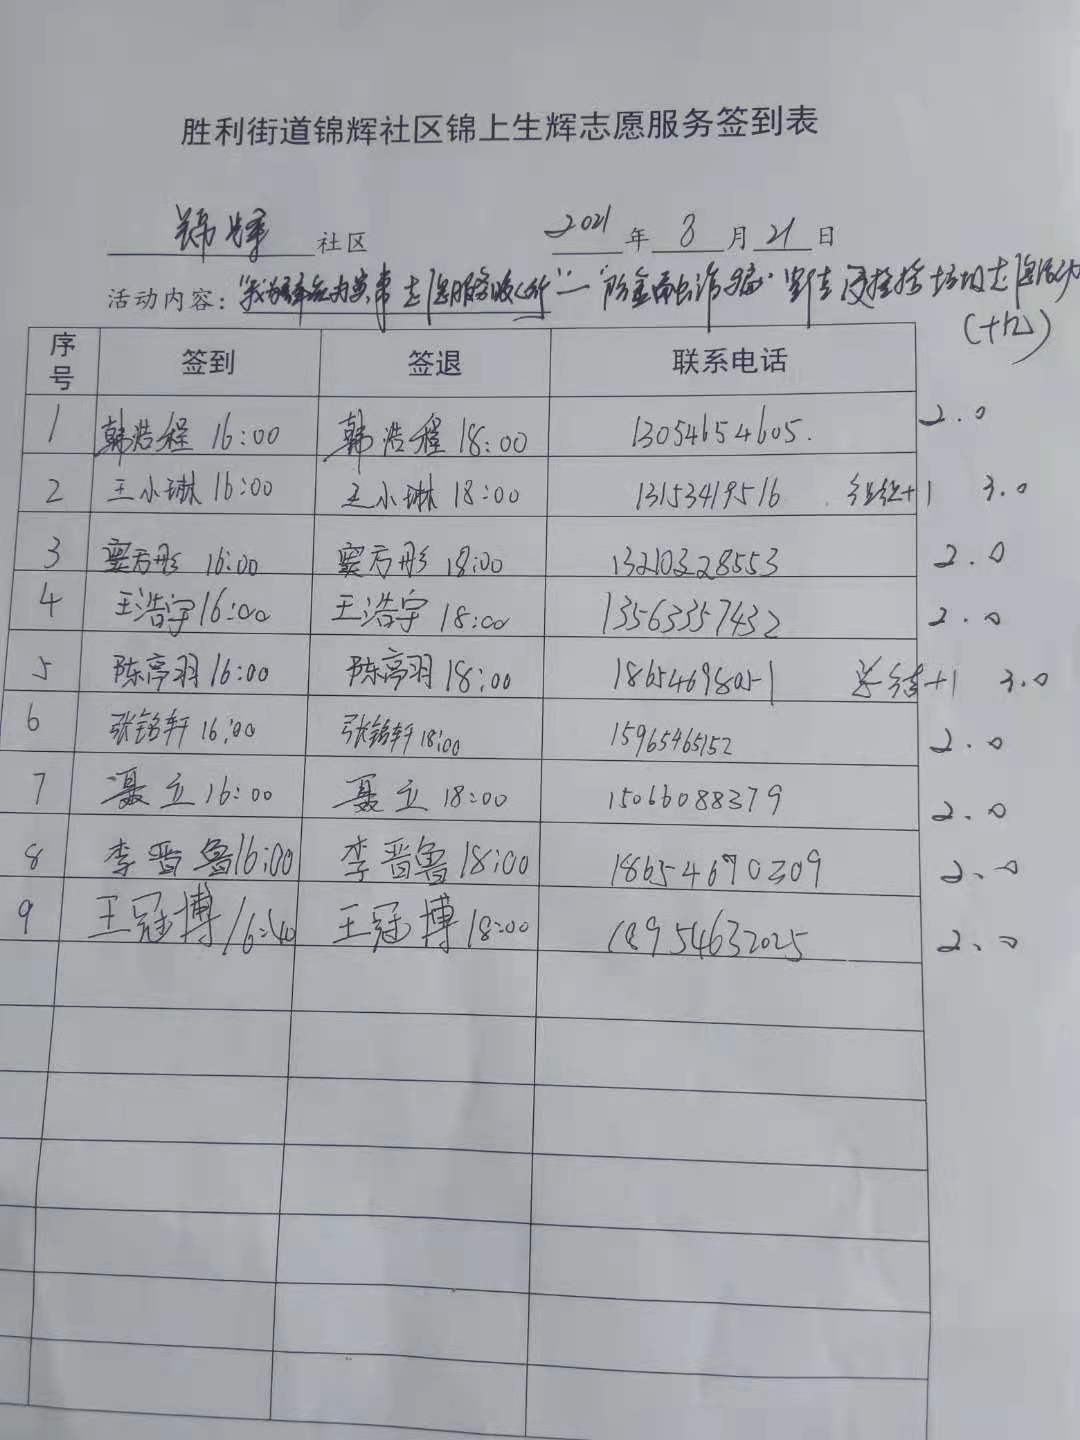 胜利街道锦辉社区锦上生辉志愿服务签到表
锦辉 社区 2021 年 8 月 21 日
活动内容：志愿服务 "防金融诈骗" 志愿活动
序号 签到 签退 联系电话
1 韩浩程 16:00 韩浩程 18:00 13054654605. 2.0
2 王小琳 16:00 王小琳 18:00 13153419516 组织+1 3.0
3 窦方彤 16:00 窦方彤 18:00 13210328553 2.0
4 王浩宇 16:00 王浩宇 18:00 13563357432 2.0
5 陈亭羽 16:00 陈亭羽 18:00 18654698051 总结+1 3.0
6 张铭轩 16:00 张铭轩 18:00 15965465152 2.0
7 聂立 16:00 聂立 18:00 15066088379 2.0
8 李晋鲁 16:00 李晋鲁 18:00 18654670309 2.0
9 王冠博 16:40 王冠博 18:00 18954632025 2.0